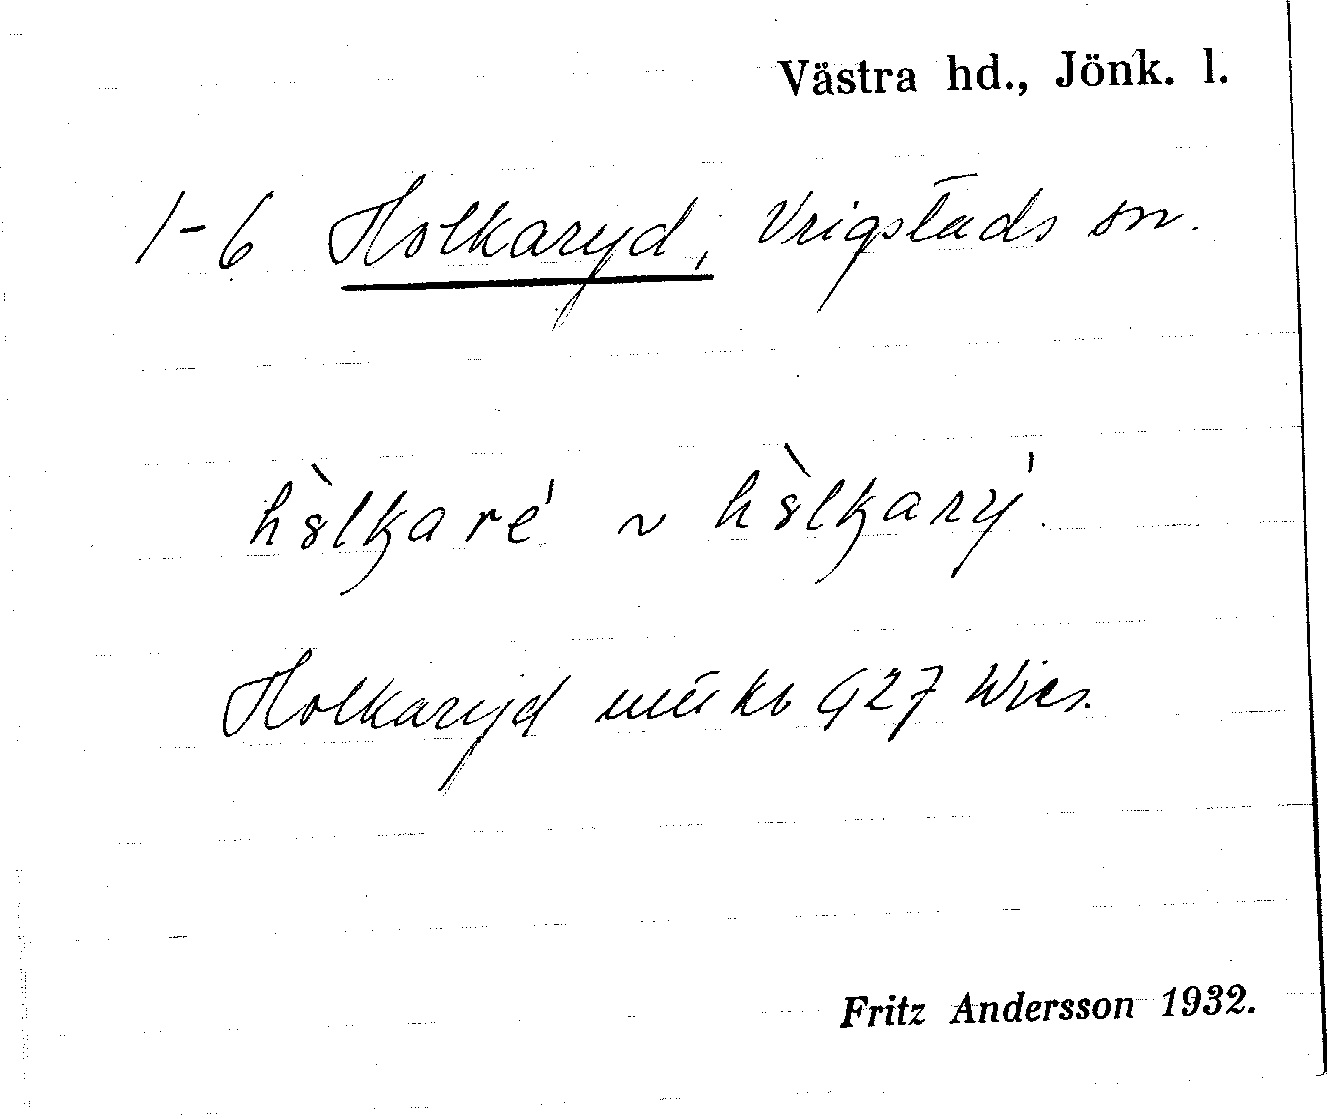 Västra hd., Jönk. l.
1-6 Holkaryd, Vrigstads sn.
hòlkaré ~ hòlkarý
Holkaryd 927 Wies.
Fritz Andersson 1932.